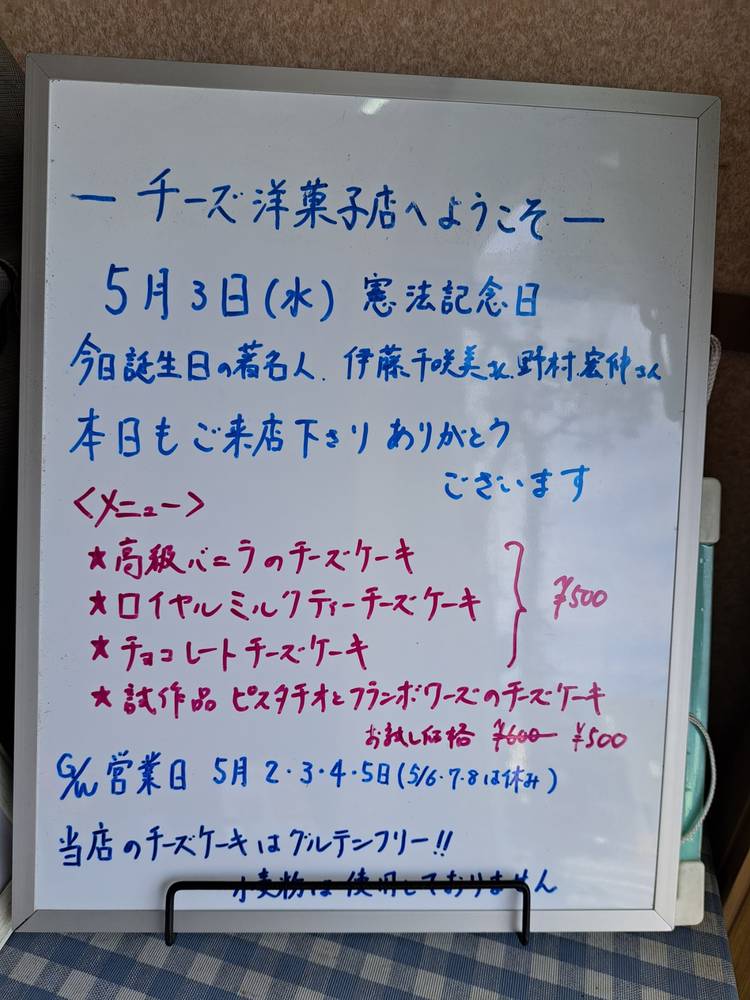 ― チーズ洋菓子店へようこそ ―
5月3日(水) 憲法記念日
今日誕生日の著名人. 伊藤千咲美さん.野村宏伸さん
本日もご来店下さり ありがとう
ございます
<メニュー>
★高級バニラのチーズケーキ
★ロイヤルミルクティーチーズケーキ
¥500
★チョコレートチーズケーキ
★試作品 ピスタチオとフランボワーズのチーズケーキ
お試し価格 ¥600 ¥500
G/W 営業日 5月 2・3・4・5日(5/6・7・8は休み)
当店のチーズケーキはグルテンフリー!!
小麦粉は使用しておりません